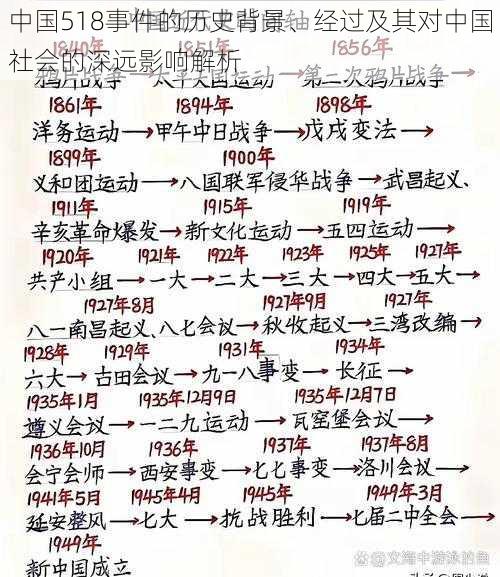 中国518事件的历史背景、经过及其对中国
社会的深远影响解析
1840年 1851年 1856年
鸦片战争→太平天国运动→第二次鸦片战争
1861年 1894年 1898年
洋务运动→甲午中日战争→戊戌变法→
1899年 1900年
义和团运动→八国联军侵华战争→武昌起义、
1911年 1915年 1919年
辛亥革命爆发→新文化运动→五四运动→
1920年 1921年 1922年 1923年 1925年 1927年
共产小组→一大→二大→三大→四大→五大→
1927年8月 1927年9月 1927年
八一南昌起义、八七会议→秋收起义→三湾改编→
1928年 1929年 1931年 1934年
六大→古田会议→九一八事变→长征→
1935年1月 1935年12月9日 1935年12月7日
遵义会议→一二九运动→瓦窑堡会议→
1936年10月 1936年 1937年 1937年8月
会宁会师→西安事变→七七事变→洛川会议→
1941年5月 1945年4月 1945年 1949年3月
延安整风→七大→抗战胜利→七届二中全会→
1949年
新中国成立